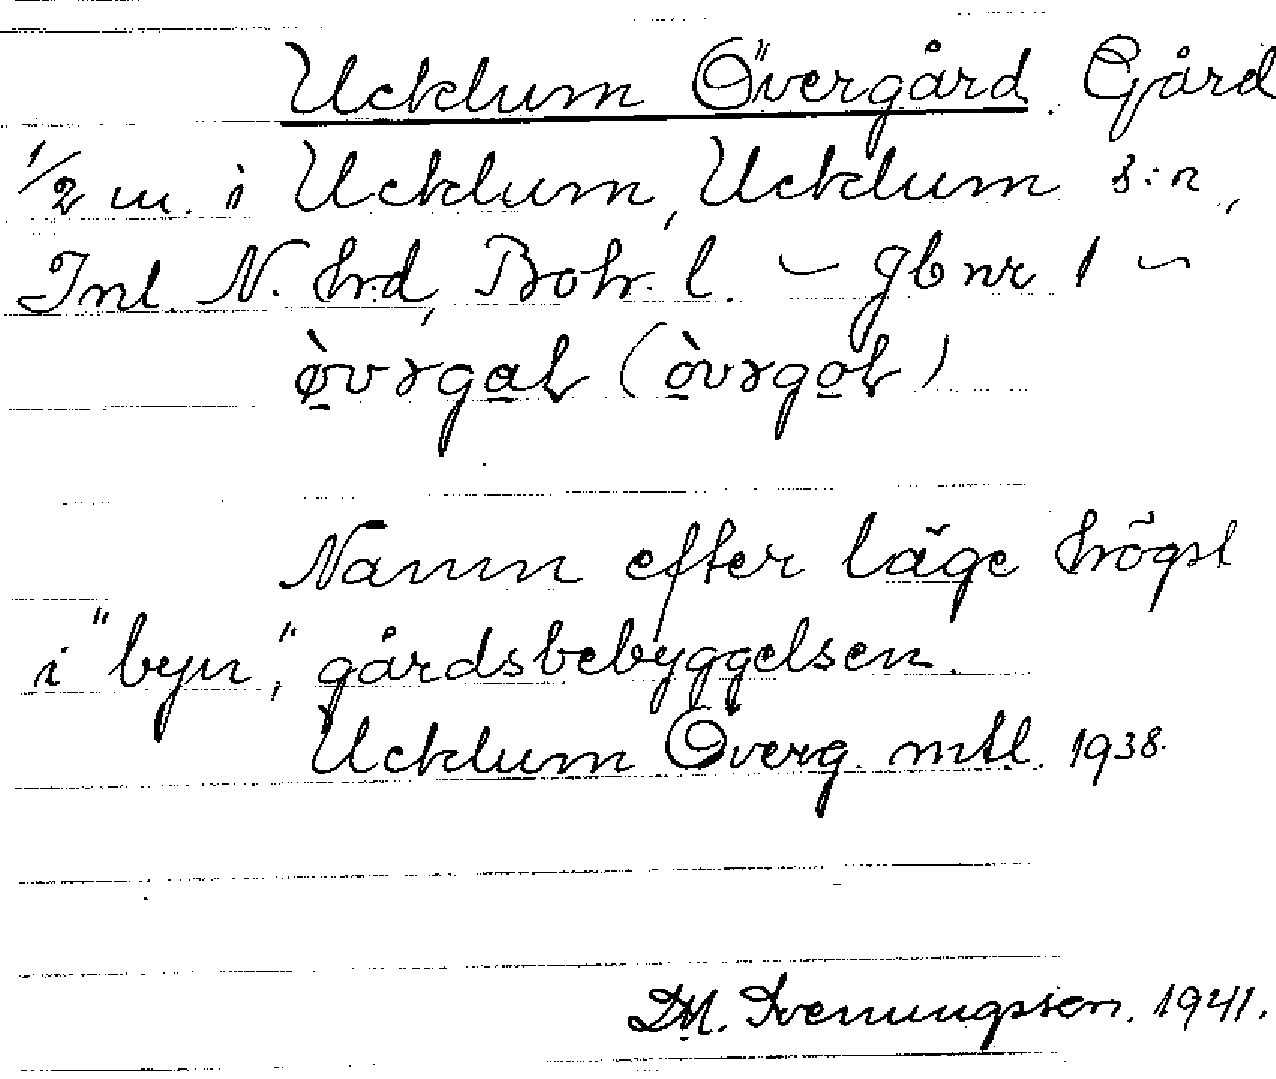 Ucklum Övergård. Gård
1/2 m. i Ucklum, Ucklum s:n,
Inl. N. hrd, Boh. l. – Jb nr 1 –
Namn efter läge högst
i "byn", gårdsbebyggelsen.
Ucklum Överg. mtl. 1938.
1941.